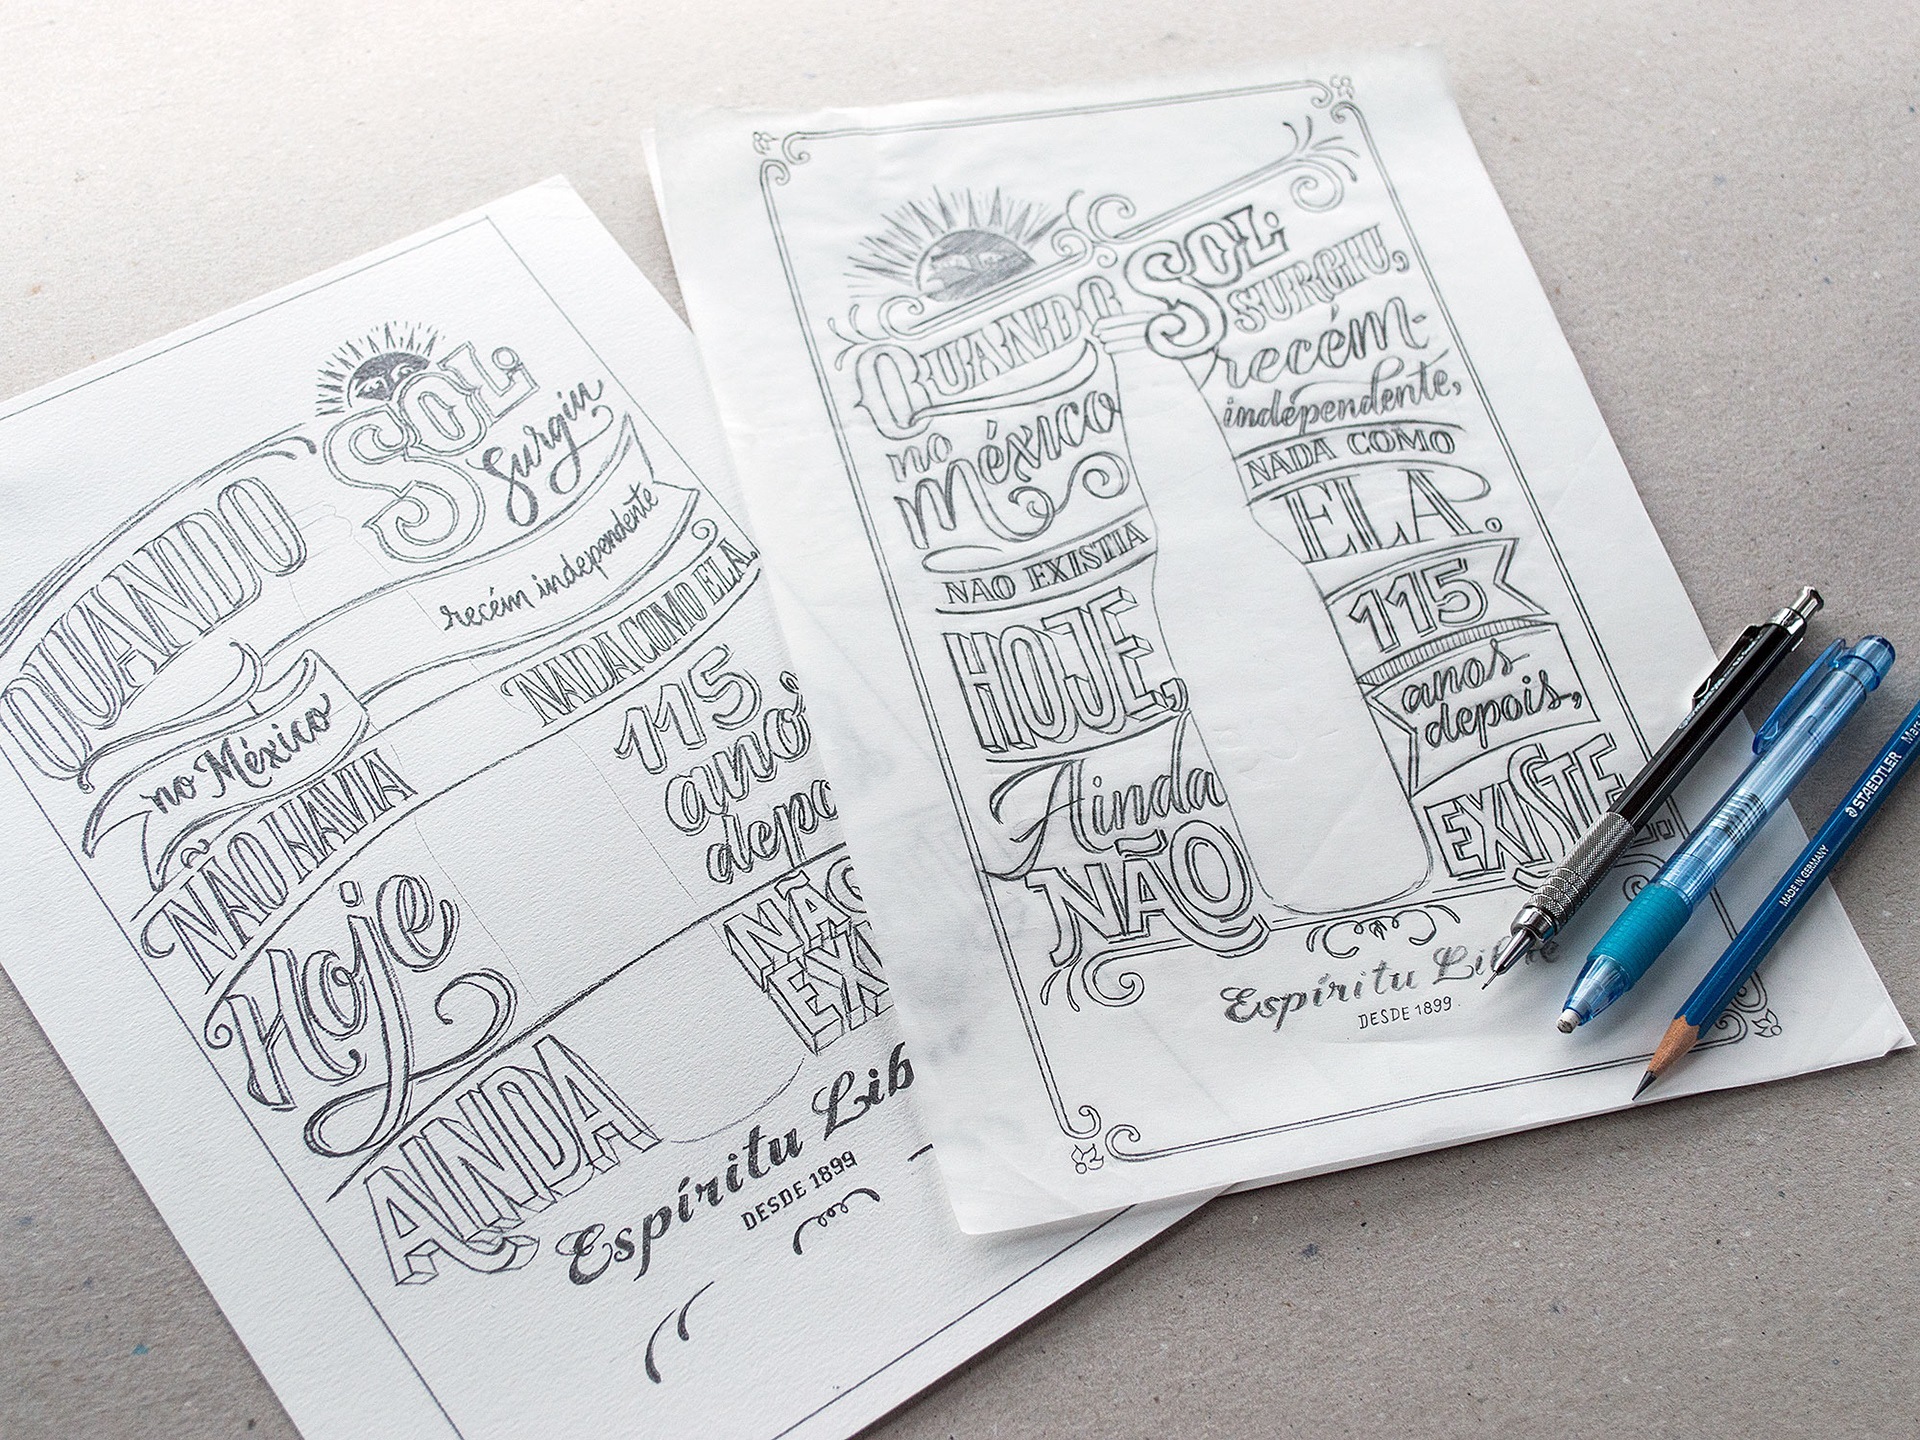 QUANDO
SOL
Surgiu
no México
recém independente
NÃO HAVIA
NADA COMO ELA.
Hoje
115
anos
AINDA
NÃO
Espíritu
DESDE 1899
QUANDO
SOL
SURGIU,
no
México
recém-
independente,
NAO EXISTIA
NADA COMO
ELA.
HOJE,
115
anos
depois,
Ainda
NÃO
EXISTE
Espíritu Libre
DESDE 1899.
STAEDTLER
MADE IN GERMANY